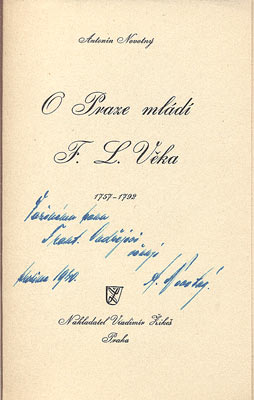 Antonín Novotný
O Praze mládí
F. L. Věka
1757-1792
Váženému panu
Frant.
věnuje
1940. A. Novotný.
Nakladatel Vladimír Žikeš
Praha